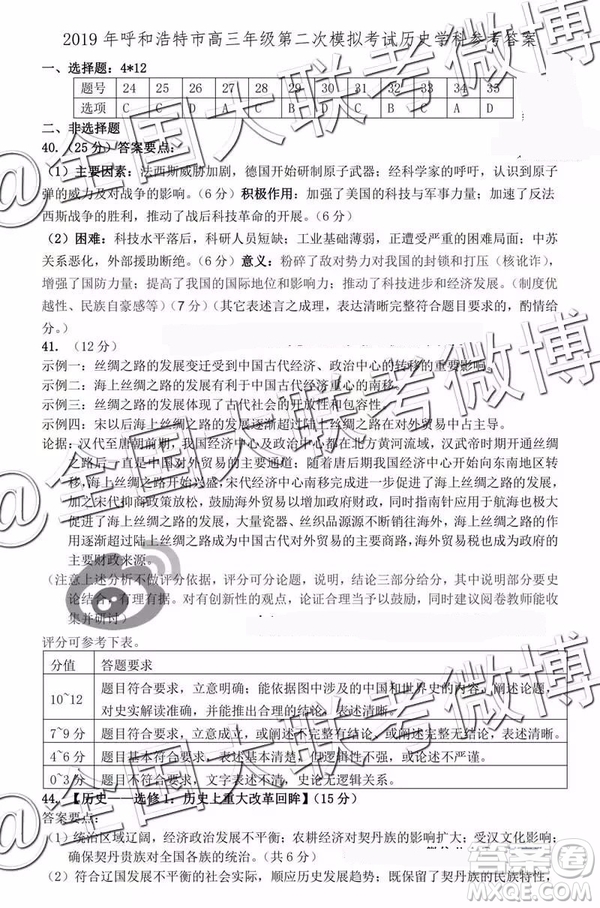 2019年呼和浩特市高三年级第二次模拟考试历史学科参考答案
一、选择题：4*12
题号 24 25 26 27 28 29 30 31 32 33 34 35
选项 C C D A
二、非选择题
40.（25分）答案要点：
（1）主要因素：法西斯威胁加剧，德国开始研制原子武器；经科学家的呼吁，认识到原子
弹的威力及对战争的影响。（6分）积极作用：加强了美国的科技与军事力量；加速了反法
西斯战争的胜利，推动了战后科技革命的开展。（6分）
（2）困难：科技水平落后，科研人员短缺；工业基础薄弱，面临严重的困难局面；中苏
关系恶化，外部援助断绝。（6分）意义：粉碎了敌对势力对我国的封锁和打压（核讹诈），
增强了国防力量；提高了我国的国际地位和影响力；推动了科技进步和经济发展。（制度优
越性、民族自豪感等）（7分）（其它表述言之成理，大意与上述答案符合可酌情给
分。）
41.（12分）
示例一：丝绸之路的发展变迁受到中国古代经济、政治中心的转移的重要影响。
示例二：海上丝绸之路的发展得益于中国古代经济重心的南移。
示例三：丝绸之路的发展体现了古代社会的开放性和包容性。
示例四：宋以后海上丝绸之路的发展逐渐超过陆上丝绸之路在对外贸易中占主导。
论据：汉代至唐朝前期，我国经济中心及政治中心都在北方黄河流域，汉武帝时期开通丝绸
之路后，一直是中国对外贸易的主要通道；随着唐后期我国经济开始向东南地区转
移，海上丝绸之路开始兴盛；宋代经济中心南移完成，推动了海上丝绸之路的发展，
加之宋代抑商政策放松，鼓励海外贸易以增加政府财政，同时指南针应用于航海也极大
促进了海上丝绸之路的发展，大量瓷器、丝织品源源不断的向外输出，海上丝绸之路
逐渐超过陆上丝绸之路成为古代中国对外贸易的主要商路。海外贸易税也成为政府的
主要财政来源。
（注意上述分析不做评分依据，评分可分论题，说明，结论三部分给分，其中说明部分要史
论结合，有理有据。对有创新性的观点，论证充分可以给以鼓励，同时建议阅卷教师能收
集并研讨）
评分可参考下表。
分值 答题要求
10~12 题目符合要求，立意明确；能依据图中涉及的中国古代历史的有关内容，阐述论题，
对史实解读准确；逻辑严谨，表述清晰。
7~9分 题目符合要求，立意成立，或阐述不太完整有考据；表述清晰。
4~6分 题目基本符合要求，但论述不够充分，或逻辑性不强，或论述不严谨。
0~3分 题目不符合要求，文字表述不清，史论无逻辑关系。
44.【历史——选修1：历史上重大改革回眸】（15分）
答案要点：
（1）统治区域辽阔，经济政治发展不平衡；农耕经济对契丹族的影响扩大；受汉文化影响；
确保契丹贵族对全国各族的统治。（共6分）
（2）符合辽国发展不平衡的社会实际，顺应历史发展趋势；既保留了契丹人的民族特性，
@全国大联考微博
答案圈
MXQE.COM